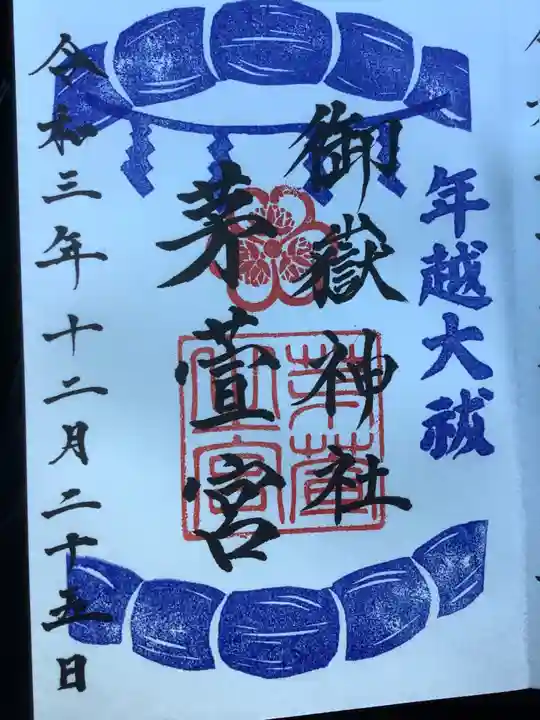 年越大祓
御嶽神社
茅萓宮
令和三年十二月二十五日